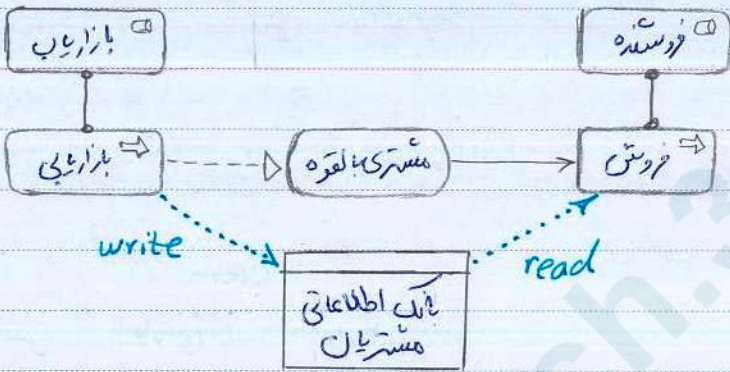 بازاریاب
فروشنده
بازاریابی
مشتری بالقوه
فروش
write
read
بانک اطلاعاتی
مشتریان